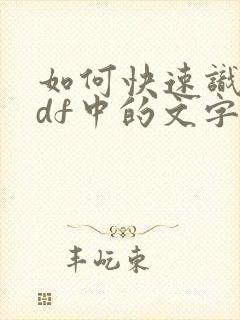 如何快速識
df中的文字
丰屹东